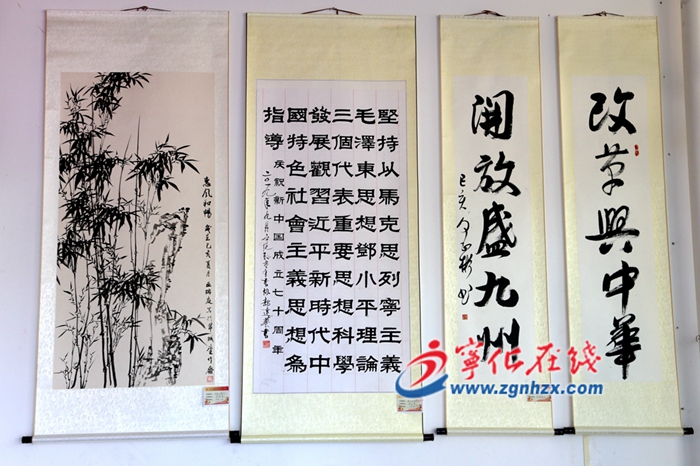 改革興中華
開放盛九州
己亥
書
堅持以馬克思列寧主義
毛澤東思想鄧小平理論
三個代表重要思想科學
發展觀習近平新時代中
國特色社會主義思想為
指導
庆祝新中国成立七十周年
二〇一九年九月
惠风和畅
己亥夏月
寧化在线
www.zgnhzx.com